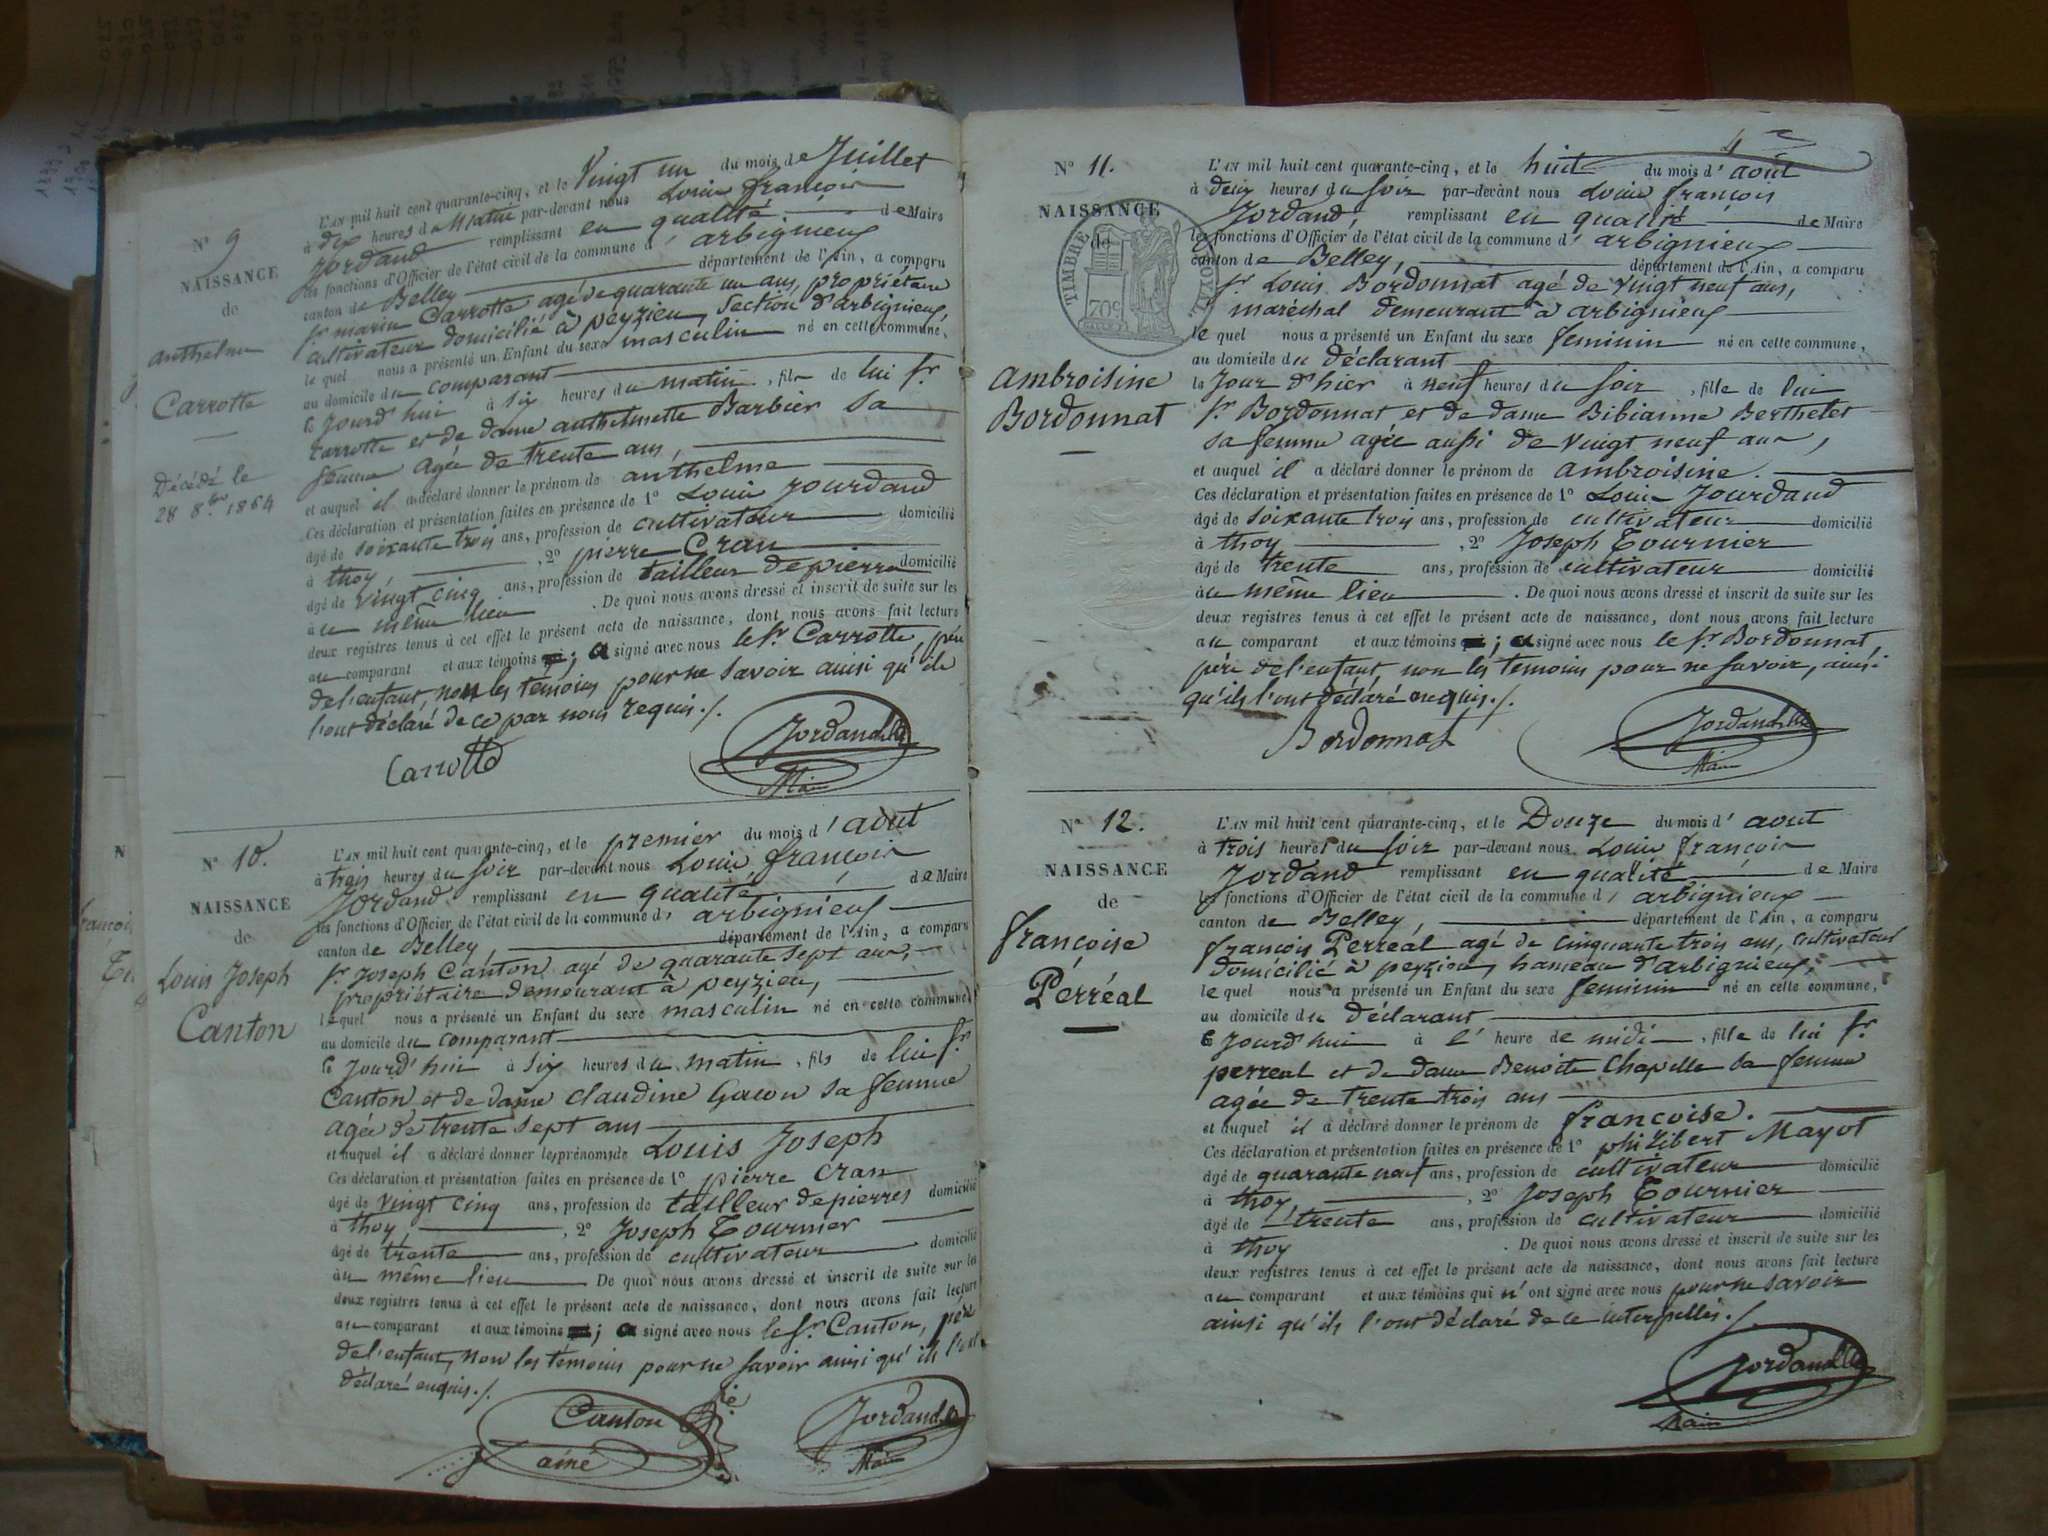 N° 9
NAISSANCE
de
anthelme
Carrotte
Décédé le
28 8bre 1864
L'AN mil huit cent quarante-cinq, et le Vingt un du mois de Juillet
à dix heures du Matin par-devant nous Louis françois
Jordand remplissant en qualité de Maire
les fonctions d'Officier de l'état civil de la commune d' arbignieux
canton de Belley département de l'Ain, a comparu
Sr. marin Carrotte agé de quarante un ans, propriétaire
cultivateur domicilié à peyzieu, Section d'arbignieux,
le quel nous a présenté un Enfant du sexe masculin né en cette commune,
au domicile du comparant
le Jourd'hui à six heures du matin, fils de lui Sr.
Carrotte et de dame anthelmette Barbier sa
femme agée de trente ans,
et auquel il a déclaré donner le prénom de anthelme
Ces déclaration et présentation faites en présence de 1° Louis Jourdand
âgé de soixante trois ans, profession de cultivateur domicilié
à thoy, , 2° pierre Cran
âgé de vingt cinq ans, profession de tailleur de pierre domicilié
à u même lieu . De quoi nous avons dressé et inscrit de suite sur les
deux registres tenus à cet effet le présent acte de naissance, dont nous avons fait lecture
au comparant et aux témoins ; a signé avec nous le Sr. Carrotte, père
de l'enfant, non les témoins pour ne savoir ainsi qu'ils
l'ont déclaré de ce par nous requis ./.
Carrotte
Jordand
Maire
N° 10.
NAISSANCE
de
Louis Joseph
Canton
L'AN mil huit cent quarante-cinq, et le premier du mois d' aout
à trois heures du soir par-devant nous Louis françois
Jordand remplissant en qualité de Maire
les fonctions d'Officier de l'état civil de la commune d' arbignieux
canton de Belley, département de l'Ain, a comparu
Sr. Joseph Canton agé de quarante sept ans,
propriétaire demeurant à peyzieu,
le quel nous a présenté un Enfant du sexe masculin né en cette commune,
au domicile du comparant
le Jourd'hui à six heures du matin, fils de lui Sr.
Canton et de dame claudine Gacon sa femme
agée de trente sept ans
et auquel il a déclaré donner les prénoms de Louis Joseph
Ces déclaration et présentation faites en présence de 1° pierre cran
âgé de vingt cinq ans, profession de tailleur de pierres domicilié
à thoy, , 2° Joseph Tournier
âgé de trente ans, profession de cultivateur domicilié
à u même lieu De quoi nous avons dressé et inscrit de suite sur les
deux registres tenus à cet effet le présent acte de naissance, dont nous avons fait lecture
au comparant et aux témoins ; a signé avec nous le Sr. Canton, père
de l'enfant, non les témoins pour ne savoir ainsi qu'ils l'ont
déclaré enquis ./.
Canton
ainé
Jordand
Maire
4
N° 11.
NAISSANCE
de
TIMBRE ROYAL
70c
ambroisine
Bordonnat
L'AN mil huit cent quarante-cinq, et le huit du mois d' aout
à deux heures du soir par-devant nous Louis françois
Jordand, remplissant en qualité de Maire
les fonctions d'Officier de l'état civil de la commune d' arbignieux
canton de Belley, département de l'Ain, a comparu
Sr. Louis Bordonnat agé de vingt neuf ans,
maréchal demeurant à arbignieux
le quel nous a présenté un Enfant du sexe feminin né en cette commune,
au domicile du déclarant
le Jour d'hier à neuf heures du soir, fille de lui
Sr. Bordonnat et de dame Bibianne Berthelet
sa femme agée aussi de vingt neuf ans,
et auquel il a déclaré donner le prénom de ambroisine.
Ces déclaration et présentation faites en présence de 1° Louis Jourdand
âgé de soixante trois ans, profession de cultivateur domicilié
à thoy , 2° Joseph Tournier
âgé de trente ans, profession de cultivateur domicilié
à u même lieu . De quoi nous avons dressé et inscrit de suite sur les
deux registres tenus à cet effet le présent acte de naissance, dont nous avons fait lecture
au comparant et aux témoins ; a signé avec nous le Sr. Bordonnat,
père de l'enfant, non les temoins pour ne savoir, ainsi
qu'ils l'ont déclaré enquis ./.
Bordonnat
Jordand
Maire
N° 12.
NAISSANCE
de
françoise
Perréal
L'AN mil huit cent quarante-cinq, et le Douze du mois d' aout
à trois heures du soir par-devant nous Louis françois
Jordand remplissant en qualité de Maire
les fonctions d'Officier de l'état civil de la commune d' arbignieux
canton de Belley, département de l'Ain, a comparu
françois Perréal agé de cinquante trois ans, cultivateur
domicilié à peyzieu, hameau d'arbignieux,
le quel nous a présenté un Enfant du sexe feminin né en cette commune,
au domicile du déclarant
le Jourd'hui à l' heure de midi, fille de lui Sr.
perreal et de dame Benoite Chapelle sa femme
agée de trente trois ans
et auquel il a déclaré donner le prénom de françoise.
Ces déclaration et présentation faites en présence de 1° philibert Mayot
âgé de quarante neuf ans, profession de cultivateur domicilié
à thoy, , 2° Joseph Tournier
âgé de trente ans, profession de cultivateur domicilié
à thoy . De quoi nous avons dressé et inscrit de suite sur les
deux registres tenus à cet effet le présent acte de naissance, dont nous avons fait lecture
au comparant et aux témoins qui n'ont signé avec nous pour ne savoir
ainsi qu'ils l'ont déclaré de ce interpellés ./.
Jordand
Maire